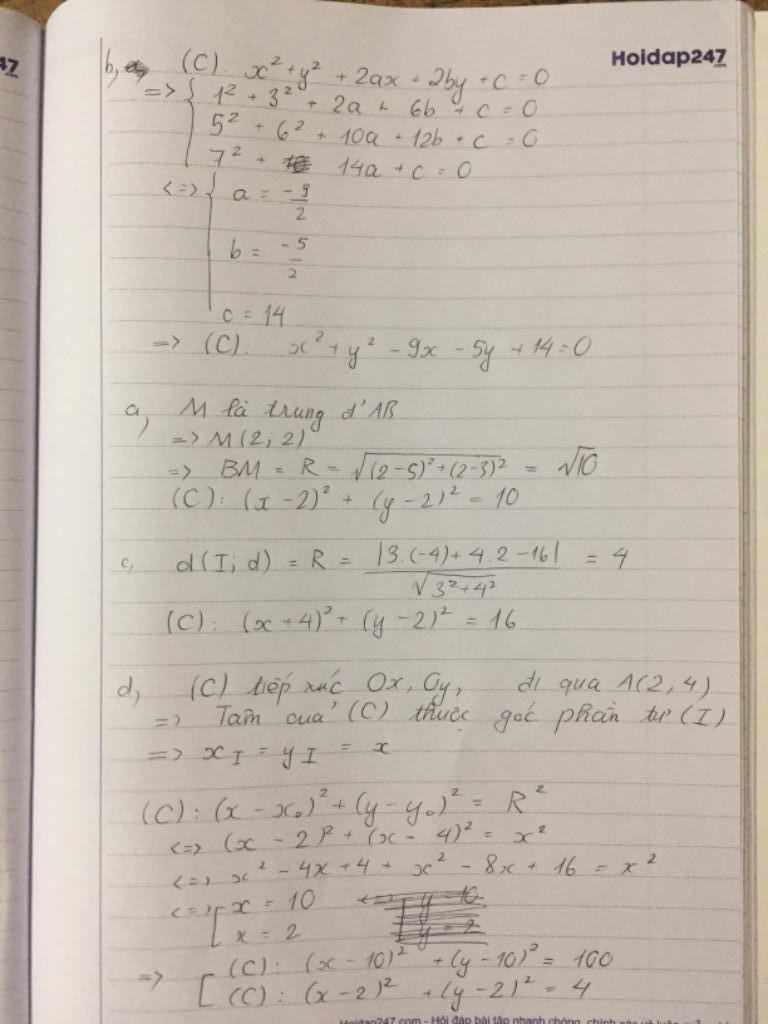 47
Hoidap247
b, (C): x² + y² + 2ax + 2by + c = 0
=> { 1² + 3² + 2a + 6b + c = 0
5² + 6² + 10a + 12b + c = 0
7² + 14a + c = 0
<=> { a = -9/2
b = -5/2
c = 14
=> (C): x² + y² - 9x - 5y + 14 = 0
a, M là trung đ' AB
=> M(2; 2)
=> BM = R = √((2-5)² + (2-3)²) = √10
(C): (x - 2)² + (y - 2)² = 10
c, d(I; d) = R = |3.(-4) + 4.2 - 16| / √(3² + 4²) = 4
(C): (x + 4)² + (y - 2)² = 16
d, (C) tiếp xúc Ox, Oy, đi qua A(2; 4)
=> Tâm của (C) thuộc góc phần tư (I)
=> x_I = y_I = x
(C): (x - x₀)² + (y - y₀)² = R²
<=> (x - 2)² + (x - 4)² = x²
<=> x² - 4x + 4 + x² - 8x + 16 = x²
<=> [ x = 10 <=> [ y = 10
x = 2 y = 2
=> [ (C): (x - 10)² + (y - 10)² = 100
(C): (x - 2)² + (y - 2)² = 4